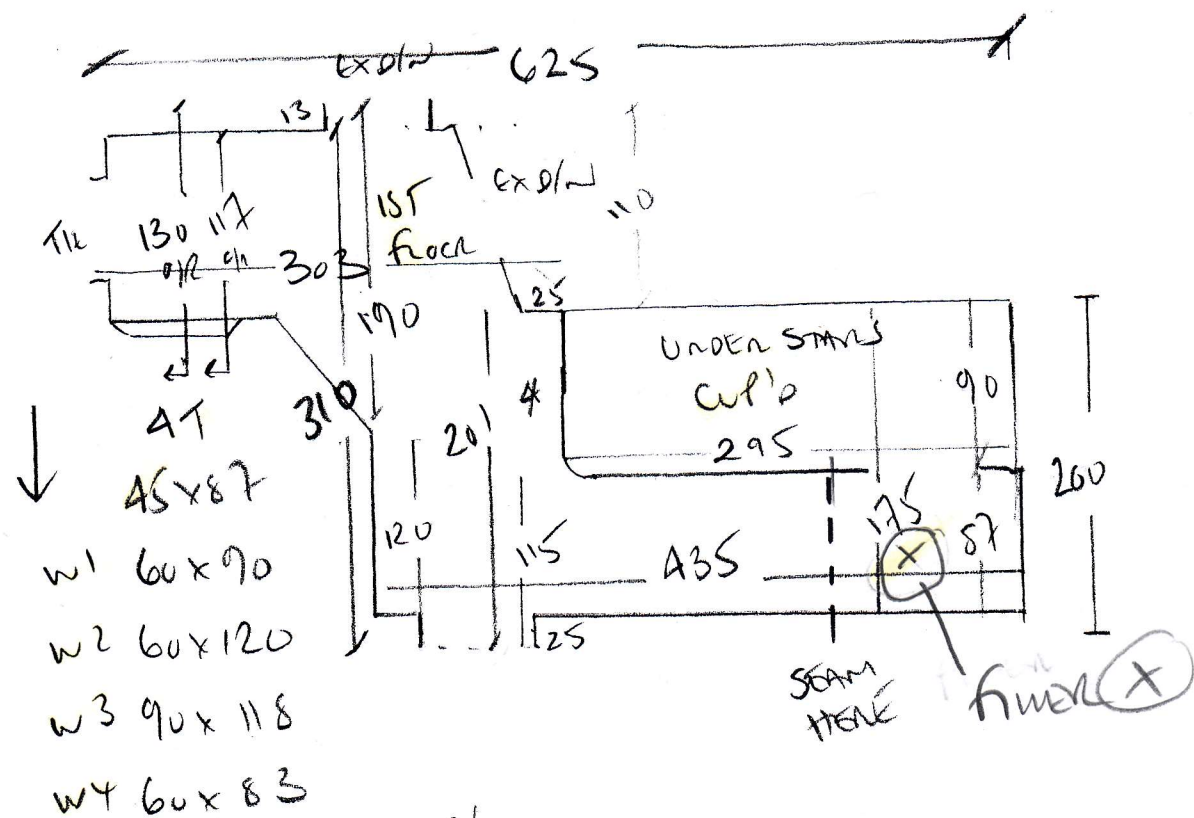 EXD/N 625
13
EXD/N
110
1ST
FLOOR
T/R 130 117
O/R O/R 303
25
190
UNDER STAIRS
CUP'D
90
310
4T
201
295
45 x 87
200
120
115
435
175
X
87
W1 60 x 90
W2 60 x 120
25
SEAM
HERE
FILLER X
W3 90 x 118
W4 60 x 83